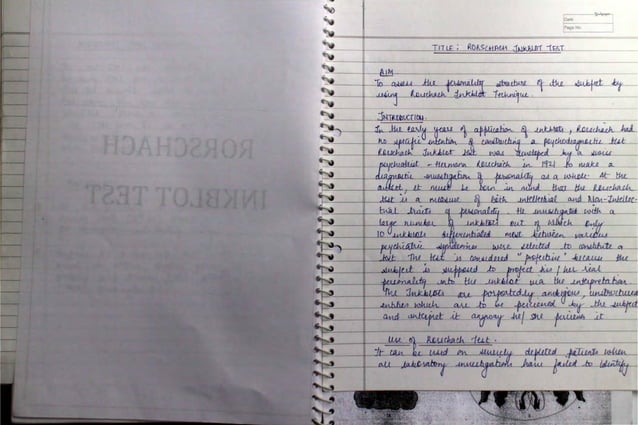 RORSCHACH
INKBLOT TEST
Date:
Page No.
TITLE : RORSCHACH INKBLOT TEST
AIM
To assess the personality structure of the subject by
using Rorschach Inkblot Technique.
INTRODUCTION
In the early years of application of inkblots, Rorschach had
no specific intention of constructing a psychodiagnostic test
Rorschach Inkblot test was developed by a swiss
psychiatrist - Hermann Rorschach in 1921 to make a
diagnostic investigation of personality as a whole. At the
outset, it must be born in mind that the Rorschach
test is a measure of both intellectual and Non-Intellec-
tual traits of personality. He investigated with a
large number of inkblots out of which only
10 inkblots differentiated most between various
psychiatric syndromes were selected to constitute a
test. The test is considered "projective" because the
subject is supposed to project his / her real
personality into the inkblot via the interpretation
The Inkblots are purportedly ambigious, unstructured
entities which are to be perceived by the subject
and interpret it anyway he/ she perceives it
Use of Rorschach Test.
It can be used on severely depleted patients when
all laboratory investigations have failed to identify